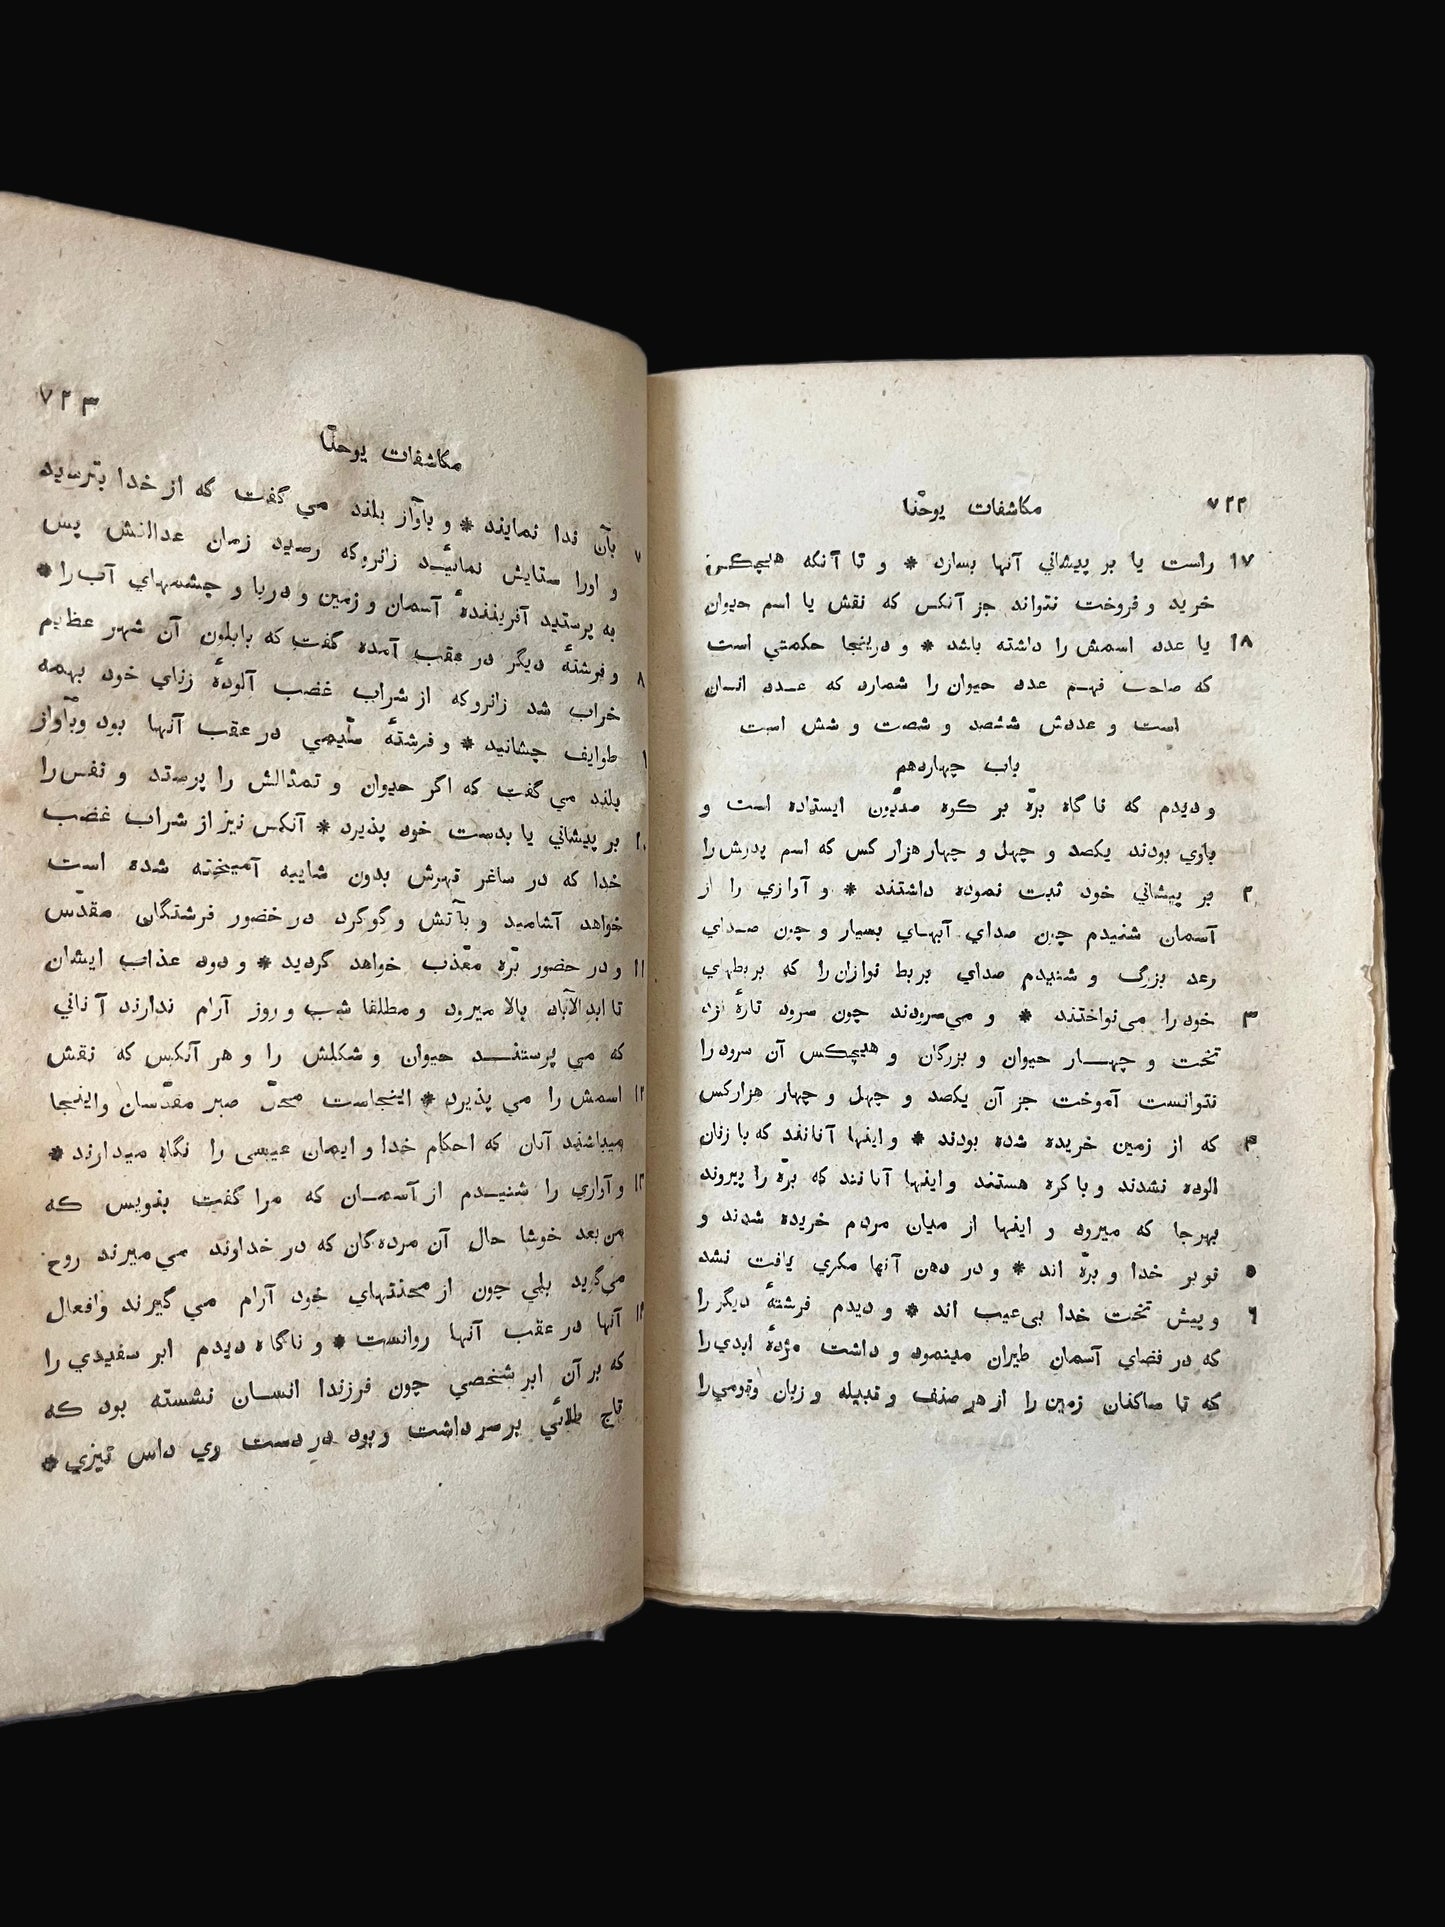 ٧٢٢
مکاشفات یوحنّا
١٧ راست یا بر پیشاني آنها بسازد * و تا آنکه هیچکس
خرید و فروخت نتواند جز آنکس که نقش یا اسم حیوان
١٨ یا عدد اسمش را داشته باشد * و درینجا حکمتي است
که صاحب فهم عدد حیوان را شمارد که عدد انسان
است و عددش ششصد و شصت و شش است
باب چهاردهم
و دیدم که ناگاه برّه بر کوه صیّون ایستاده است و
باوي بودند یکصد و چهل و چهار هزار کس که اسم پدرش را
٢ بر پیشاني خود ثبت نموده داشتند * و آوازي را از
آسمان شنیدم چون صداي آبهاي بسیار و چون صداي
رعد بزرگ و شنیدم صداي بربط نوازان را که بربطهاي
٣ خود را می‌نواختند * و می‌سرودند چون سرود تازهٔ نزد
تخت و چهار حیوان و بزرگان و هیچکس آن سرود را
نتوانست آموخت جز آن یکصد و چهل و چهار هزار کس
٤ که از زمین خریده شده بودند * و اینها آنانند که با زنان
الوده نشدند و باکره هستند و اینها آنانند که برّه را پیروند
بهرجا که میرود و اینها از میان مردم خریده شدند و
٥ نوبر خدا و برّه اند * و در دهن آنها مکري یافت نشد
٦ و پیش تخت خدا بی‌عیب اند * و دیدم فرشتهٔ دیگر را
که در فضاي آسمان طیران مینمود و داشت مژدهٔ ابدي را
که تا ساکنان زمین را از هر صنف و قبیله و زبان وقومي را
٧٢٣
مکاشفات یوحنّا
٧ بآن ندا نمایند * و بآواز بلند مي گفت که از خدا بترسید
و اورا ستایش نمائید زانروکه رسید زمان عدالتش پس
به پرستید آفرینندهٔ آسمان و زمین و دریا و چشمهاي آب را *
٨ و فرشتهٔ دیگر در عقب آمده گفت که بابلون آن شهر عظیم
خراب شد زانروکه از شراب غضب آلودهٔ زناي خود بهمه
طوایف چشانید * و فرشتهٔ سیّمي در عقب آنها بود وبآواز
بلند مي گفت که اگر حیوان و تمثالش را پرستد و نقش را
١٠ بر پیشاني یا بدست خود پذیرد * آنکس نیز از شراب غضب
خدا که در ساغر قهرش بدون شایبه آمیخته شده است
خواهد آشامید و بآتش و گوگرد در حضور فرشتگان مقدّس
١١ و در حضور برّه معّذب خواهد گردید * و دود عذاب ایشان
تا ابدالآباد بالا میرود و مطلقا شب و روز آرام ندارند آناني
که مي پرستند حیوان و شکلش را و هر آنکس که نقش
١٢ اسمش را مي پذیرد * اینجاست محلّ صبر مقدّسان واینجا
میباشند آنان که احکام خدا و ایمان عیسی را نگاه میدارند *
١٣ و آوازي را شنیدم از آسمان که مرا گفت بنویس که
من بعد خوشا حال آن مرده‌گان که در خداوند مي میرند روح
مي‌گوید بلي چون از محنتهاي خود آرام مي گیرند وافعال
١٤ آنها در عقب آنها روانست * و ناگاه دیدم ابر سفیدي را
که بر آن ابر شخصي چون فرزندا انسان نشسته بود که
تاج طلائي بر سر داشت و بود در دست وي داس تیزي *